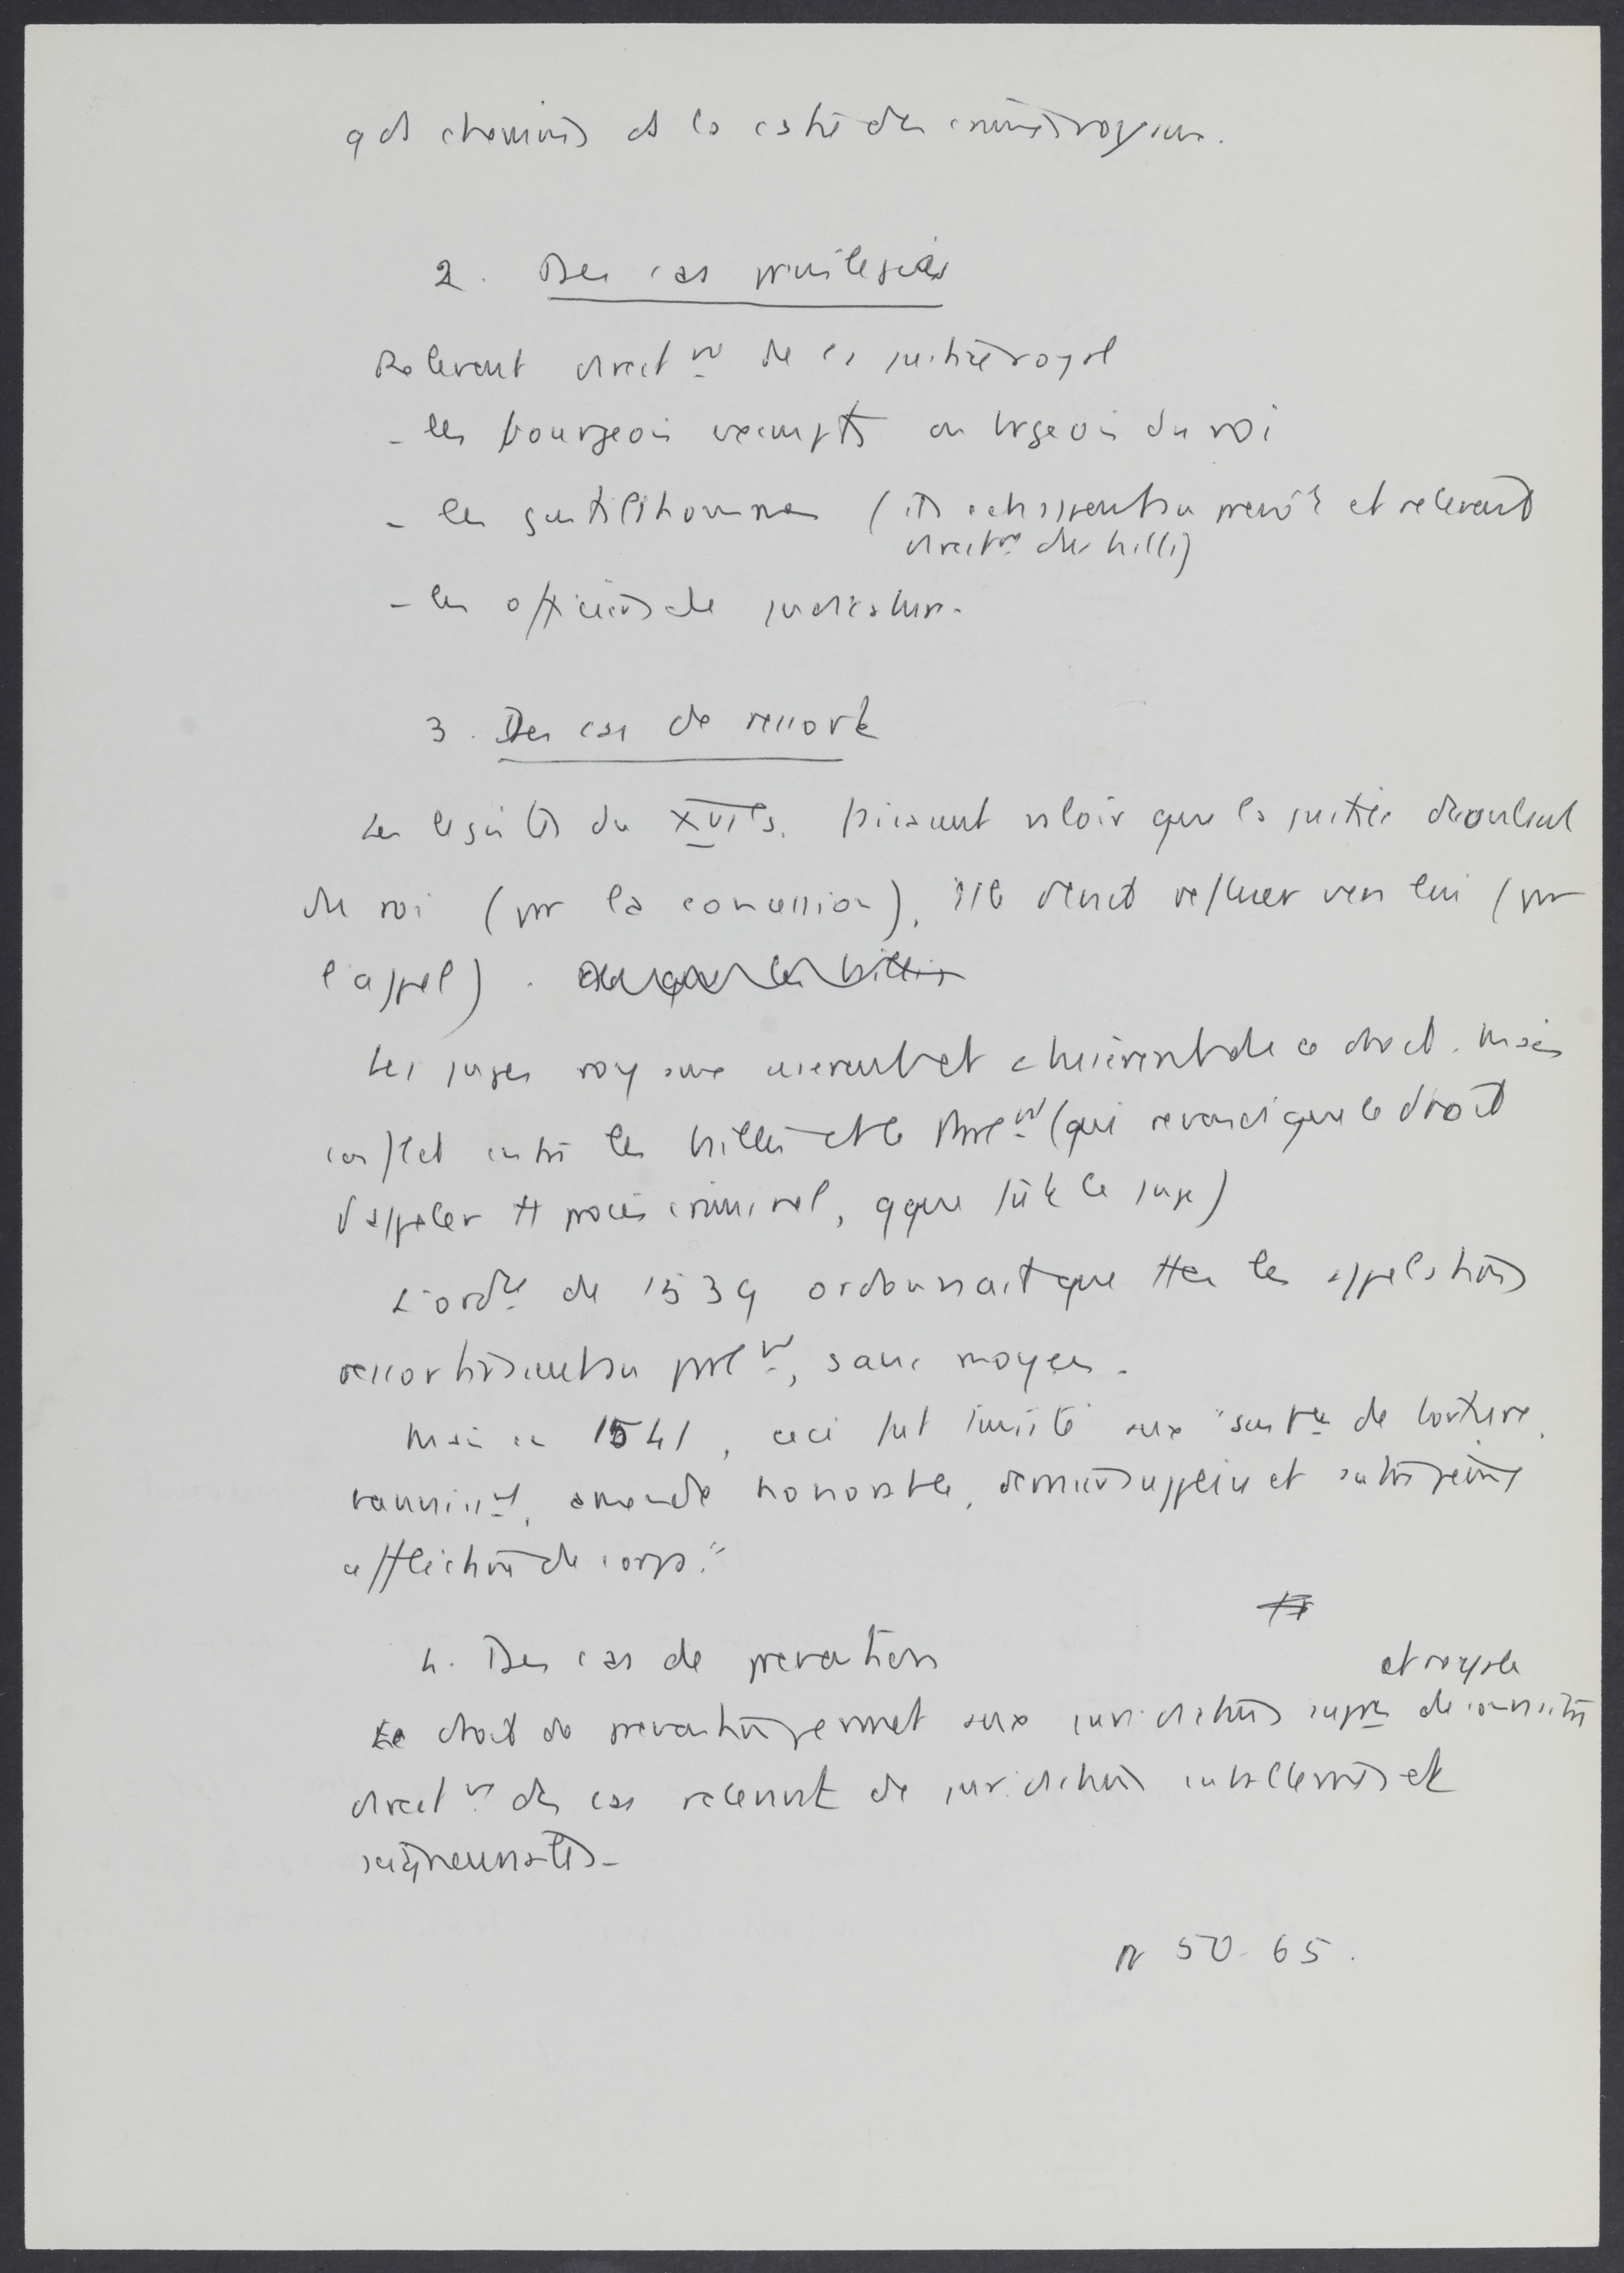 gds chemins et la liste des crimes royaux.
2. Des cas privilégiés
Relèvent directt de la justice royale
- les bourgeois exempts ou bourgeois du roi
- les gentilshommes (ils échappent au prévôt et relèvent
directt du bailli)
- les officiers de judicature.
3. Des cas de ressort
Les légistes du XVIe s. faisaient valoir que la justice découlant
du roi (par la concession), elle devait refluer vers lui (par
l'appel).
Les juges royaux usèrent et abusèrent de ce droit. Mais
conflit entre les baillis et le Parlt (qui revendique le droit
d'appeler tt procès criminel, qque fût le juge)
L'ordce de 1539 ordonnait que ttes les appellations
ressortissent au parlt, sans moyen.
Mais en 1541, ceci fut limité aux "sentces de torture,
bannisst, amende honorable, dernier supplice et autres peines
afflictives de corps."
4. Des cas de prévention
et royale
Le droit de prévention permet aux juridictions supres de connaître
directt des cas relevant de juridictions subalternes et
seigneuriales.
p 50-65.